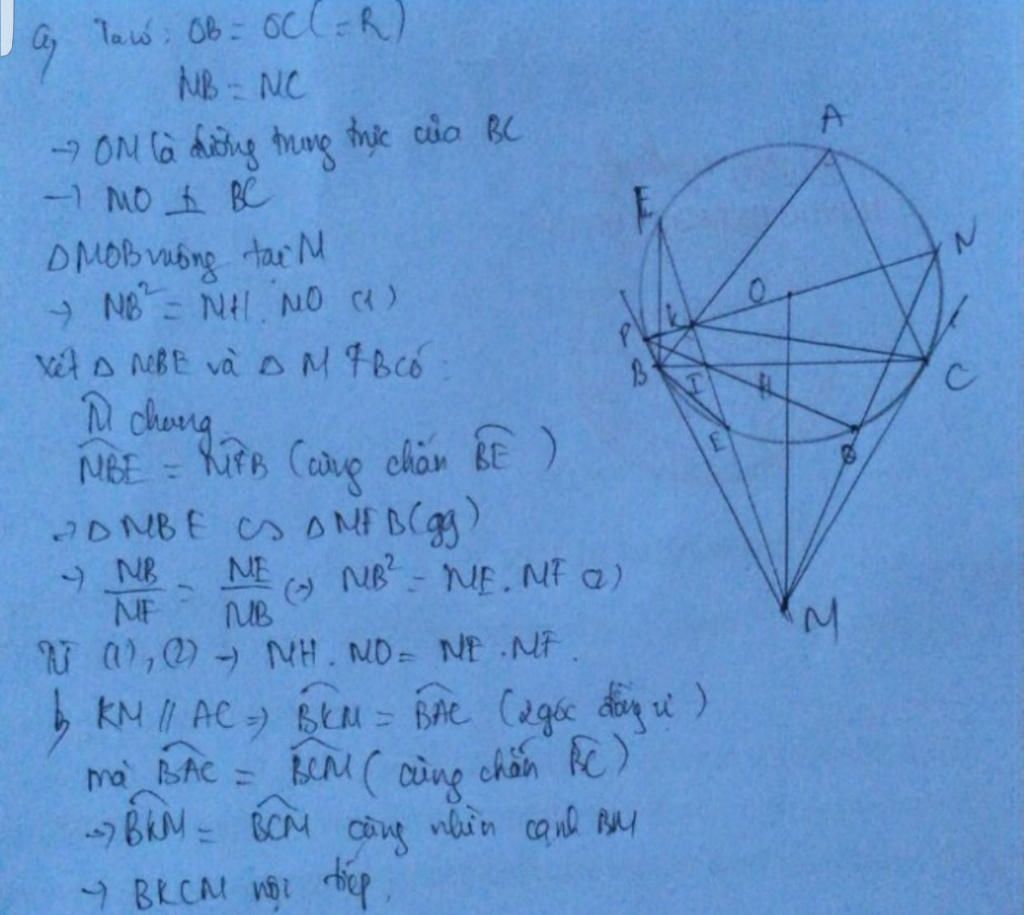 a) Ta có : OB = OC (= R)
MB = MC
→ OM là đường trung trực của BC
→ MO ⊥ BC
ΔMOB vuông tại M
→ MB² = MH . MO (1)
Xét Δ MBE và Δ MFB có :
M̂ chung
MBE = MFB (cùng chắn BE)
→ Δ MBE ∽ Δ MFB (gg)
→ MB/MF = ME/MB (→) MB² = ME . MF (2)
Từ (1), (2) → MH . MO = ME . MF.
b) KM // AC => BKM = BAC (2 góc đồng vị)
mà BAC = BCM (cùng chắn BC)
→ BKM = BCM cùng nhìn cạnh BM
→ BKCM nội tiếp.
A
E
N
O
K
P
B
I
H
C
E
M